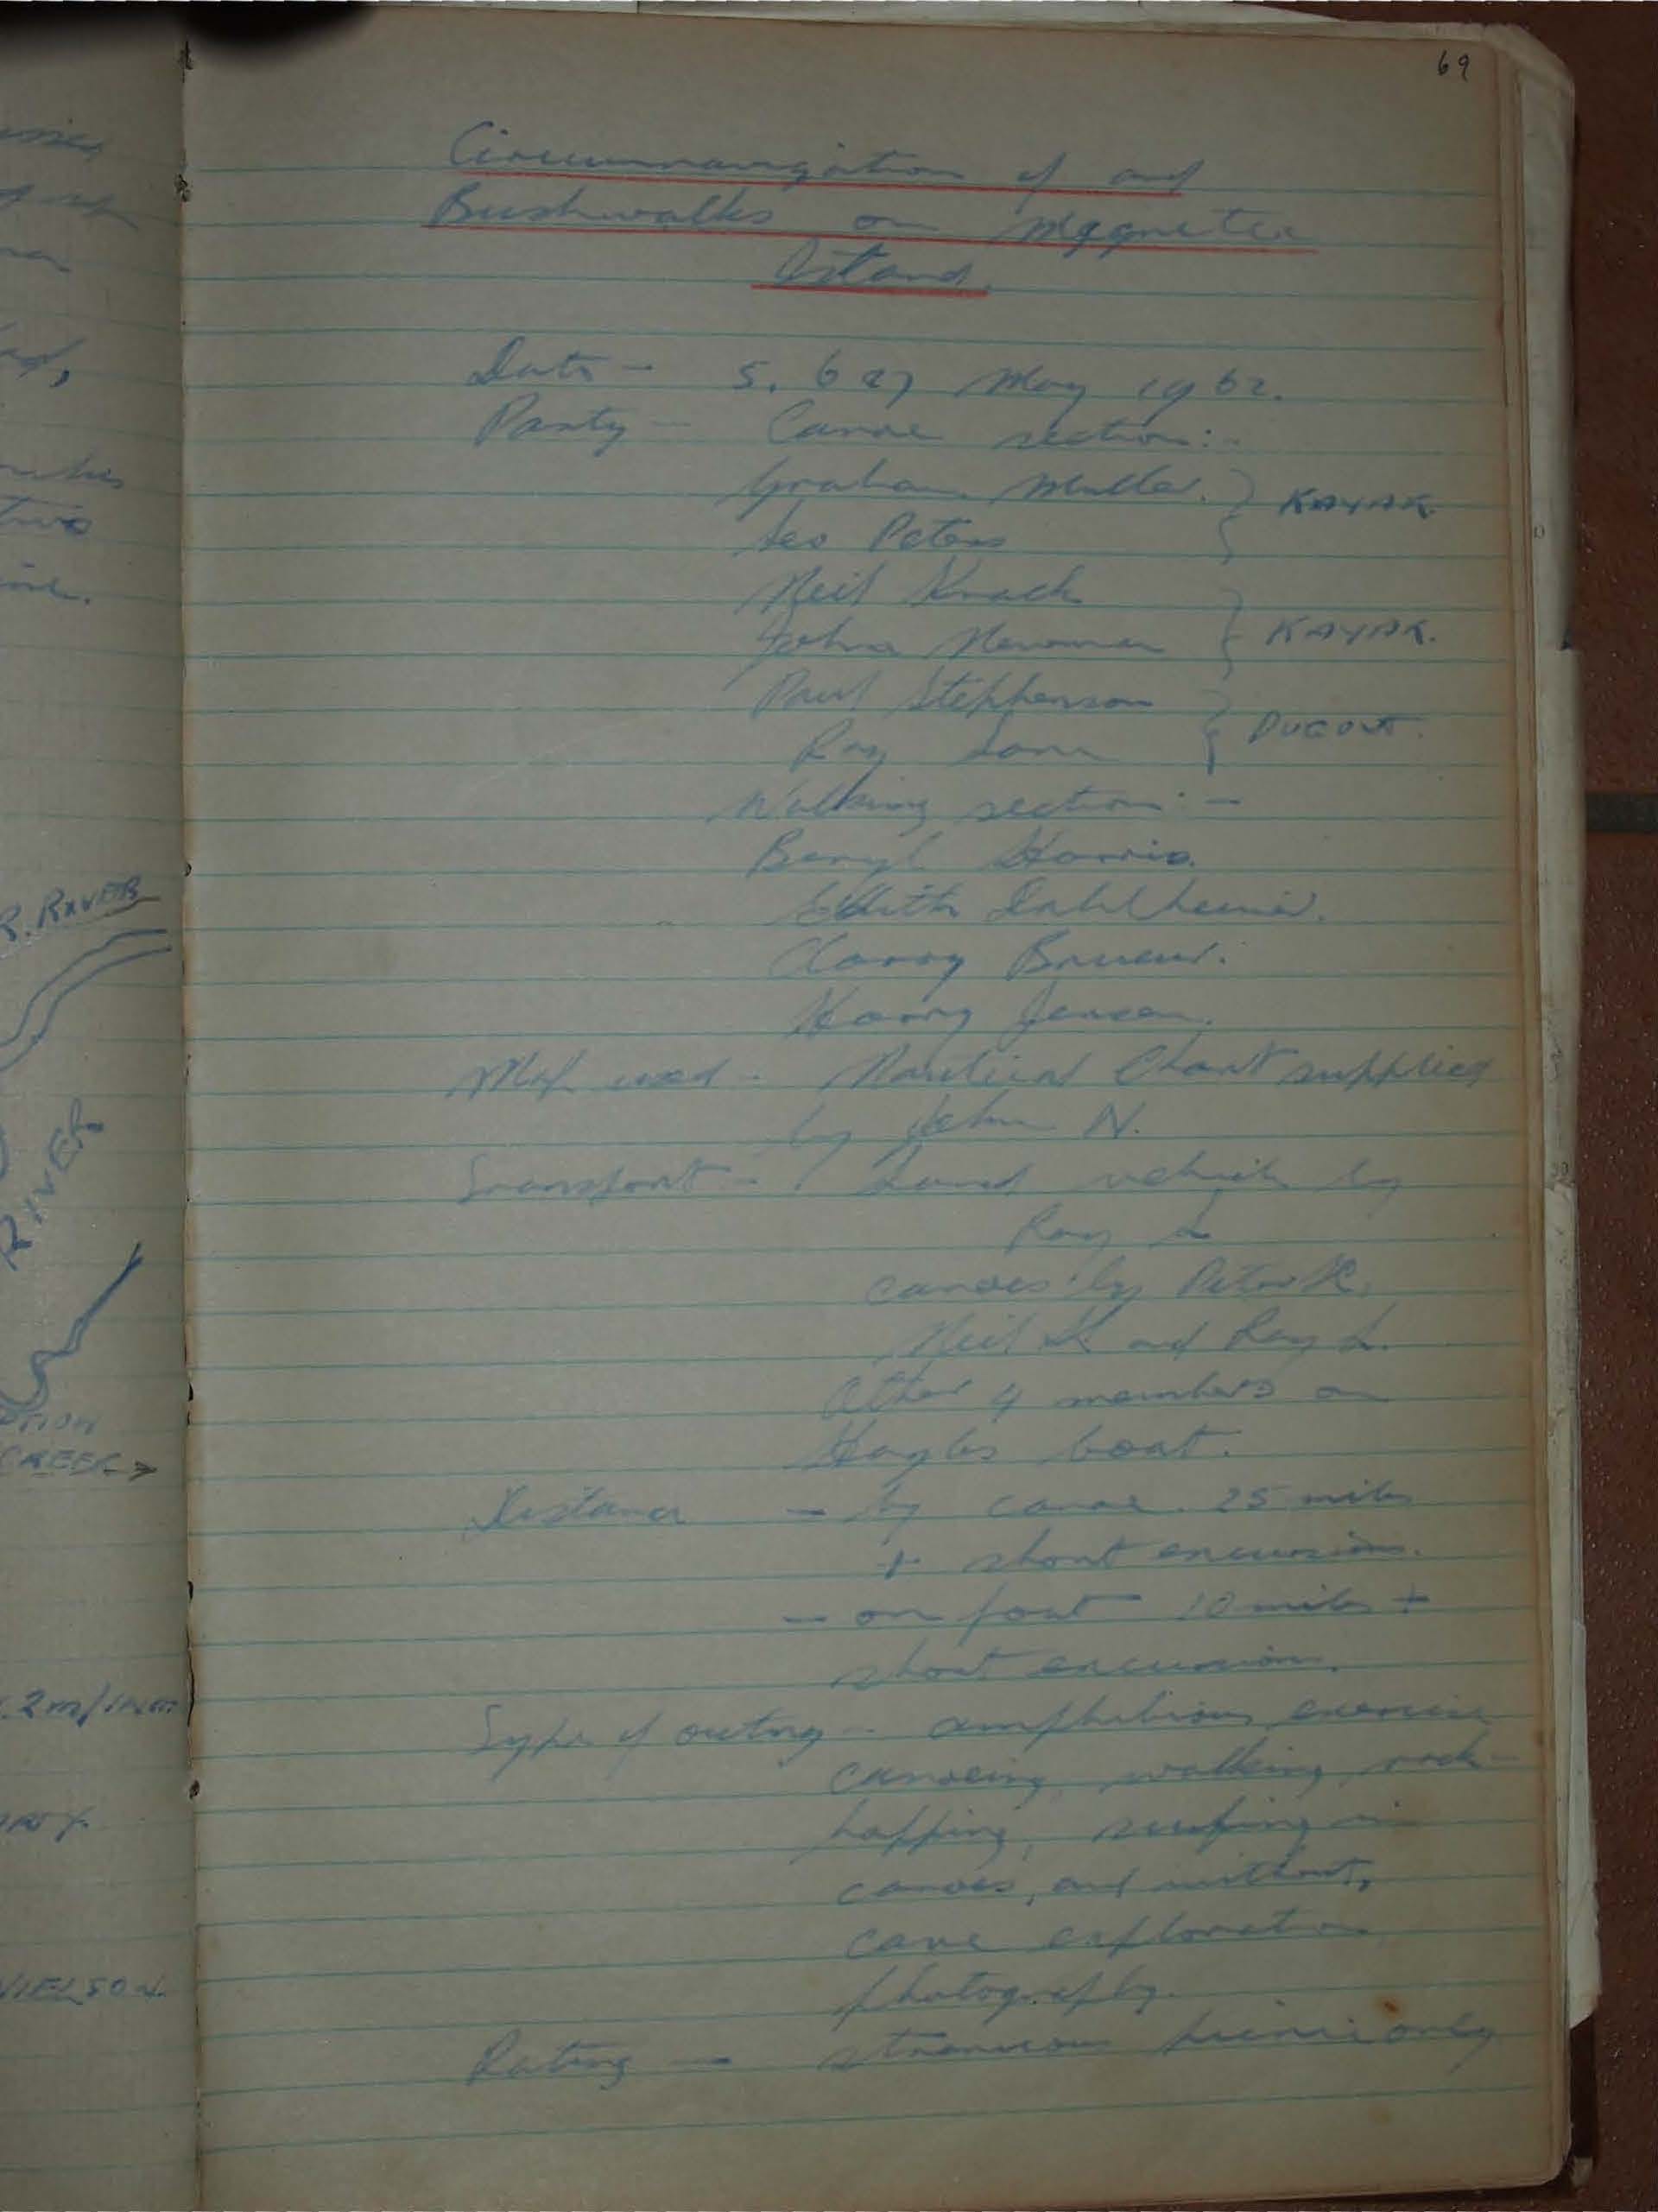 69
Circumnavigation of and
Bushwalks on Magnetic
Island.
Date - 5, 6 & 7 May 1962.
Party - Canoe section:-
Graham Muller. } KAYAK
Leo Peters
Neil Knack
John Newman } KAYAK.
Paul Stephenson
Ray Lane } DUGOUT.
Walking section:-
Beryl Harris.
Edith
Harry Jensen.
Map used - Nautical Chart supplied
by John N.
Transport - Land vehicle by
Ray L
canoes by Peter K,
Neil K and Ray L.
Other 4 members on
Hayles boat.
Distance - by canoe 25 miles
+ short excursions.
- on foot 10 miles +
short excursions.
Type of outing - amphibious exercise
canoeing, walking, rock-
hopping, surfing in
canoes, and without,
cave exploration
photography.
Rating - strenuous picnic only
R. RIVER
RIVER
CREEK